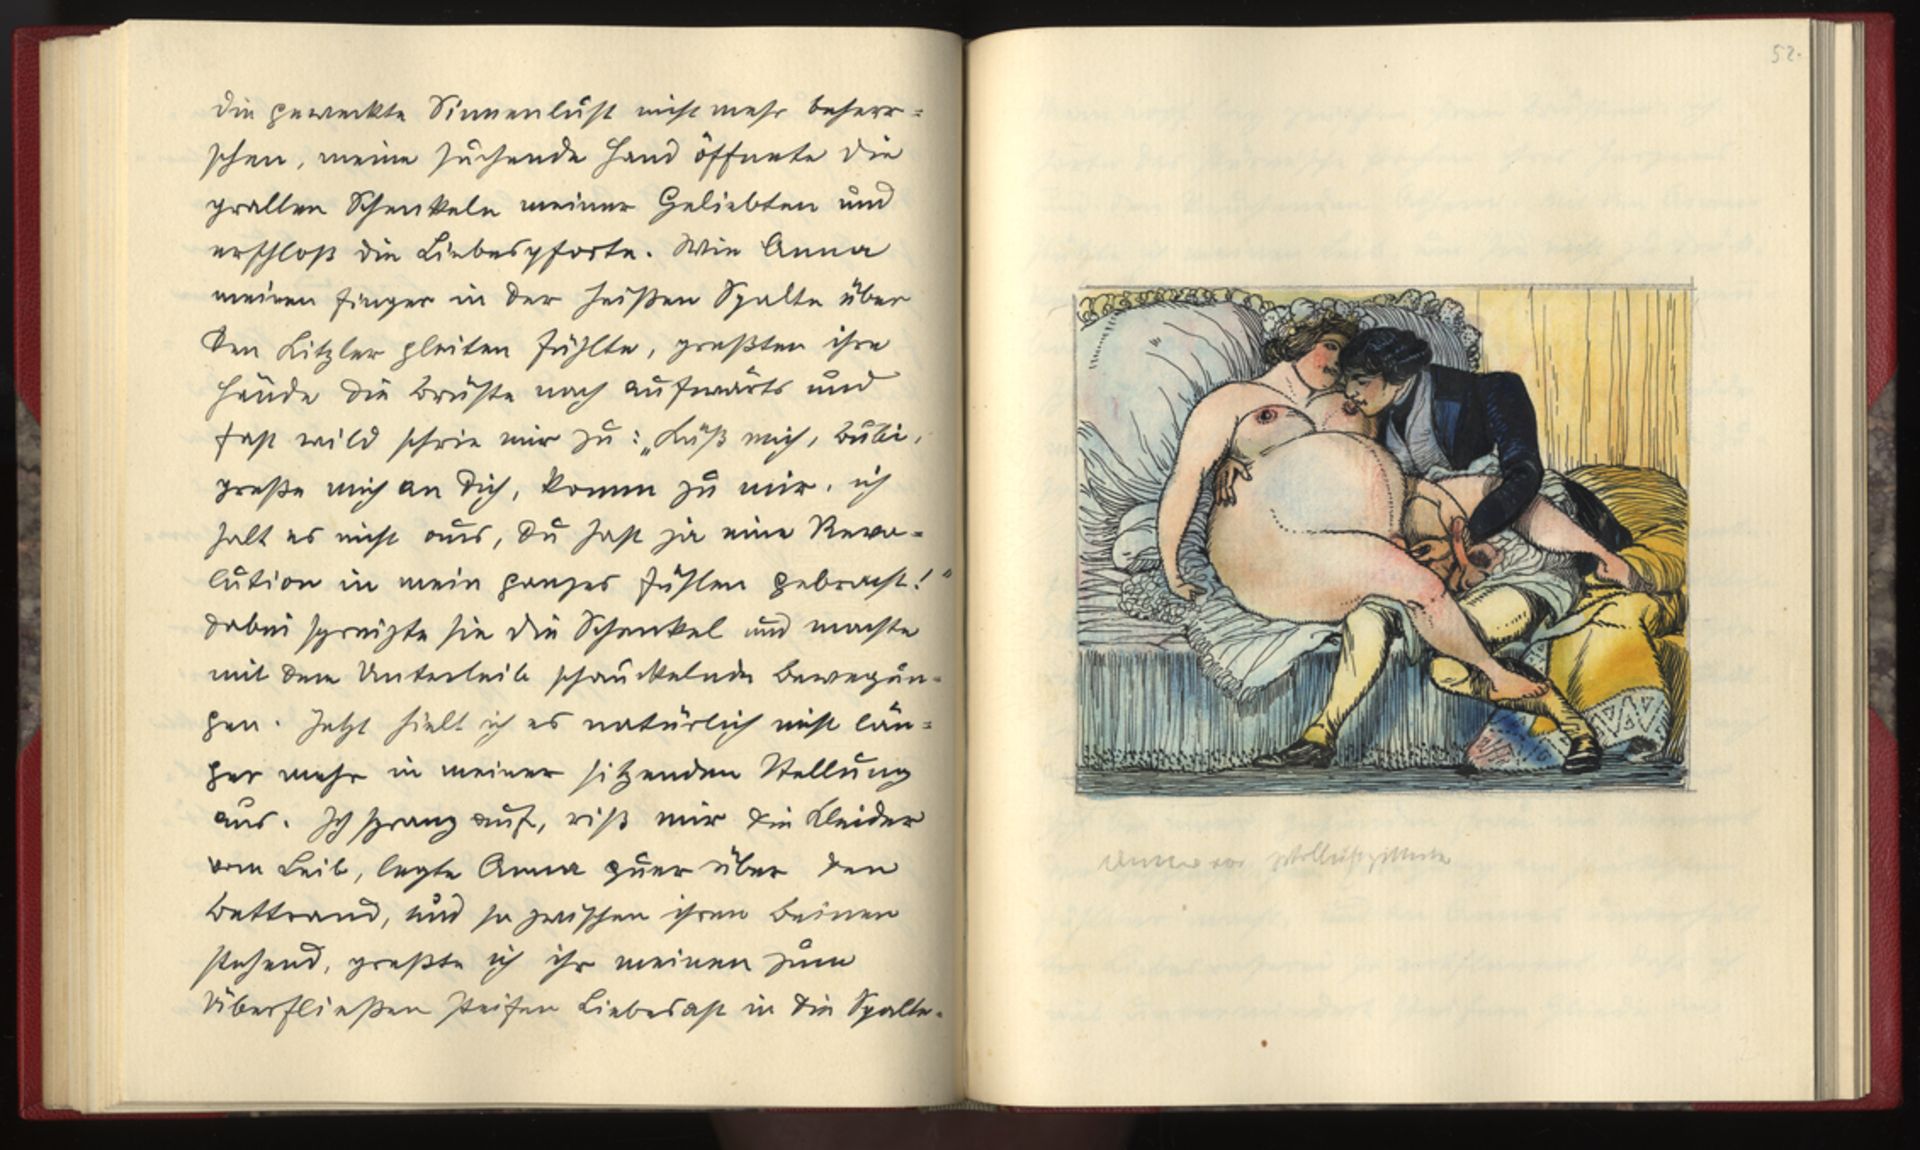 die geweckte Sinnenlust nicht mehr beherr=
schen, meine suchende Hand öffnete die
prallen Schenkeln meiner Geliebten und
erschloß die Liebespforte. Wie Anna
meinen Finger in der heißen Spalte über
den Kitzler gleiten fühlte, preßten ihre
Hände die Brüste nach aufwärts und
fast wild schrie mir zu: „Küß mich, Bubi,
presse mich an dich, komm zu mir, ich
halt es nicht aus, du hast ja eine Revo=
lution in mein ganzes Fühlen gebracht!"
Dabei spreizte sie die Schenkel und machte
mit dem Unterleib schauckelnde Bewegun=
gen. Jetzt hielt ich es natürlich nicht län=
ger mehr in meiner sitzenden Stellung
aus. Ich sprang auf, riß mir die Kleider
vom Leib, legte Anna quer über den
Bettrand, und so zwischen ihren Beinen
stehend, preßte ich ihr meinen zum
Überfließen steifen Liebesast in die Spalte.
52.